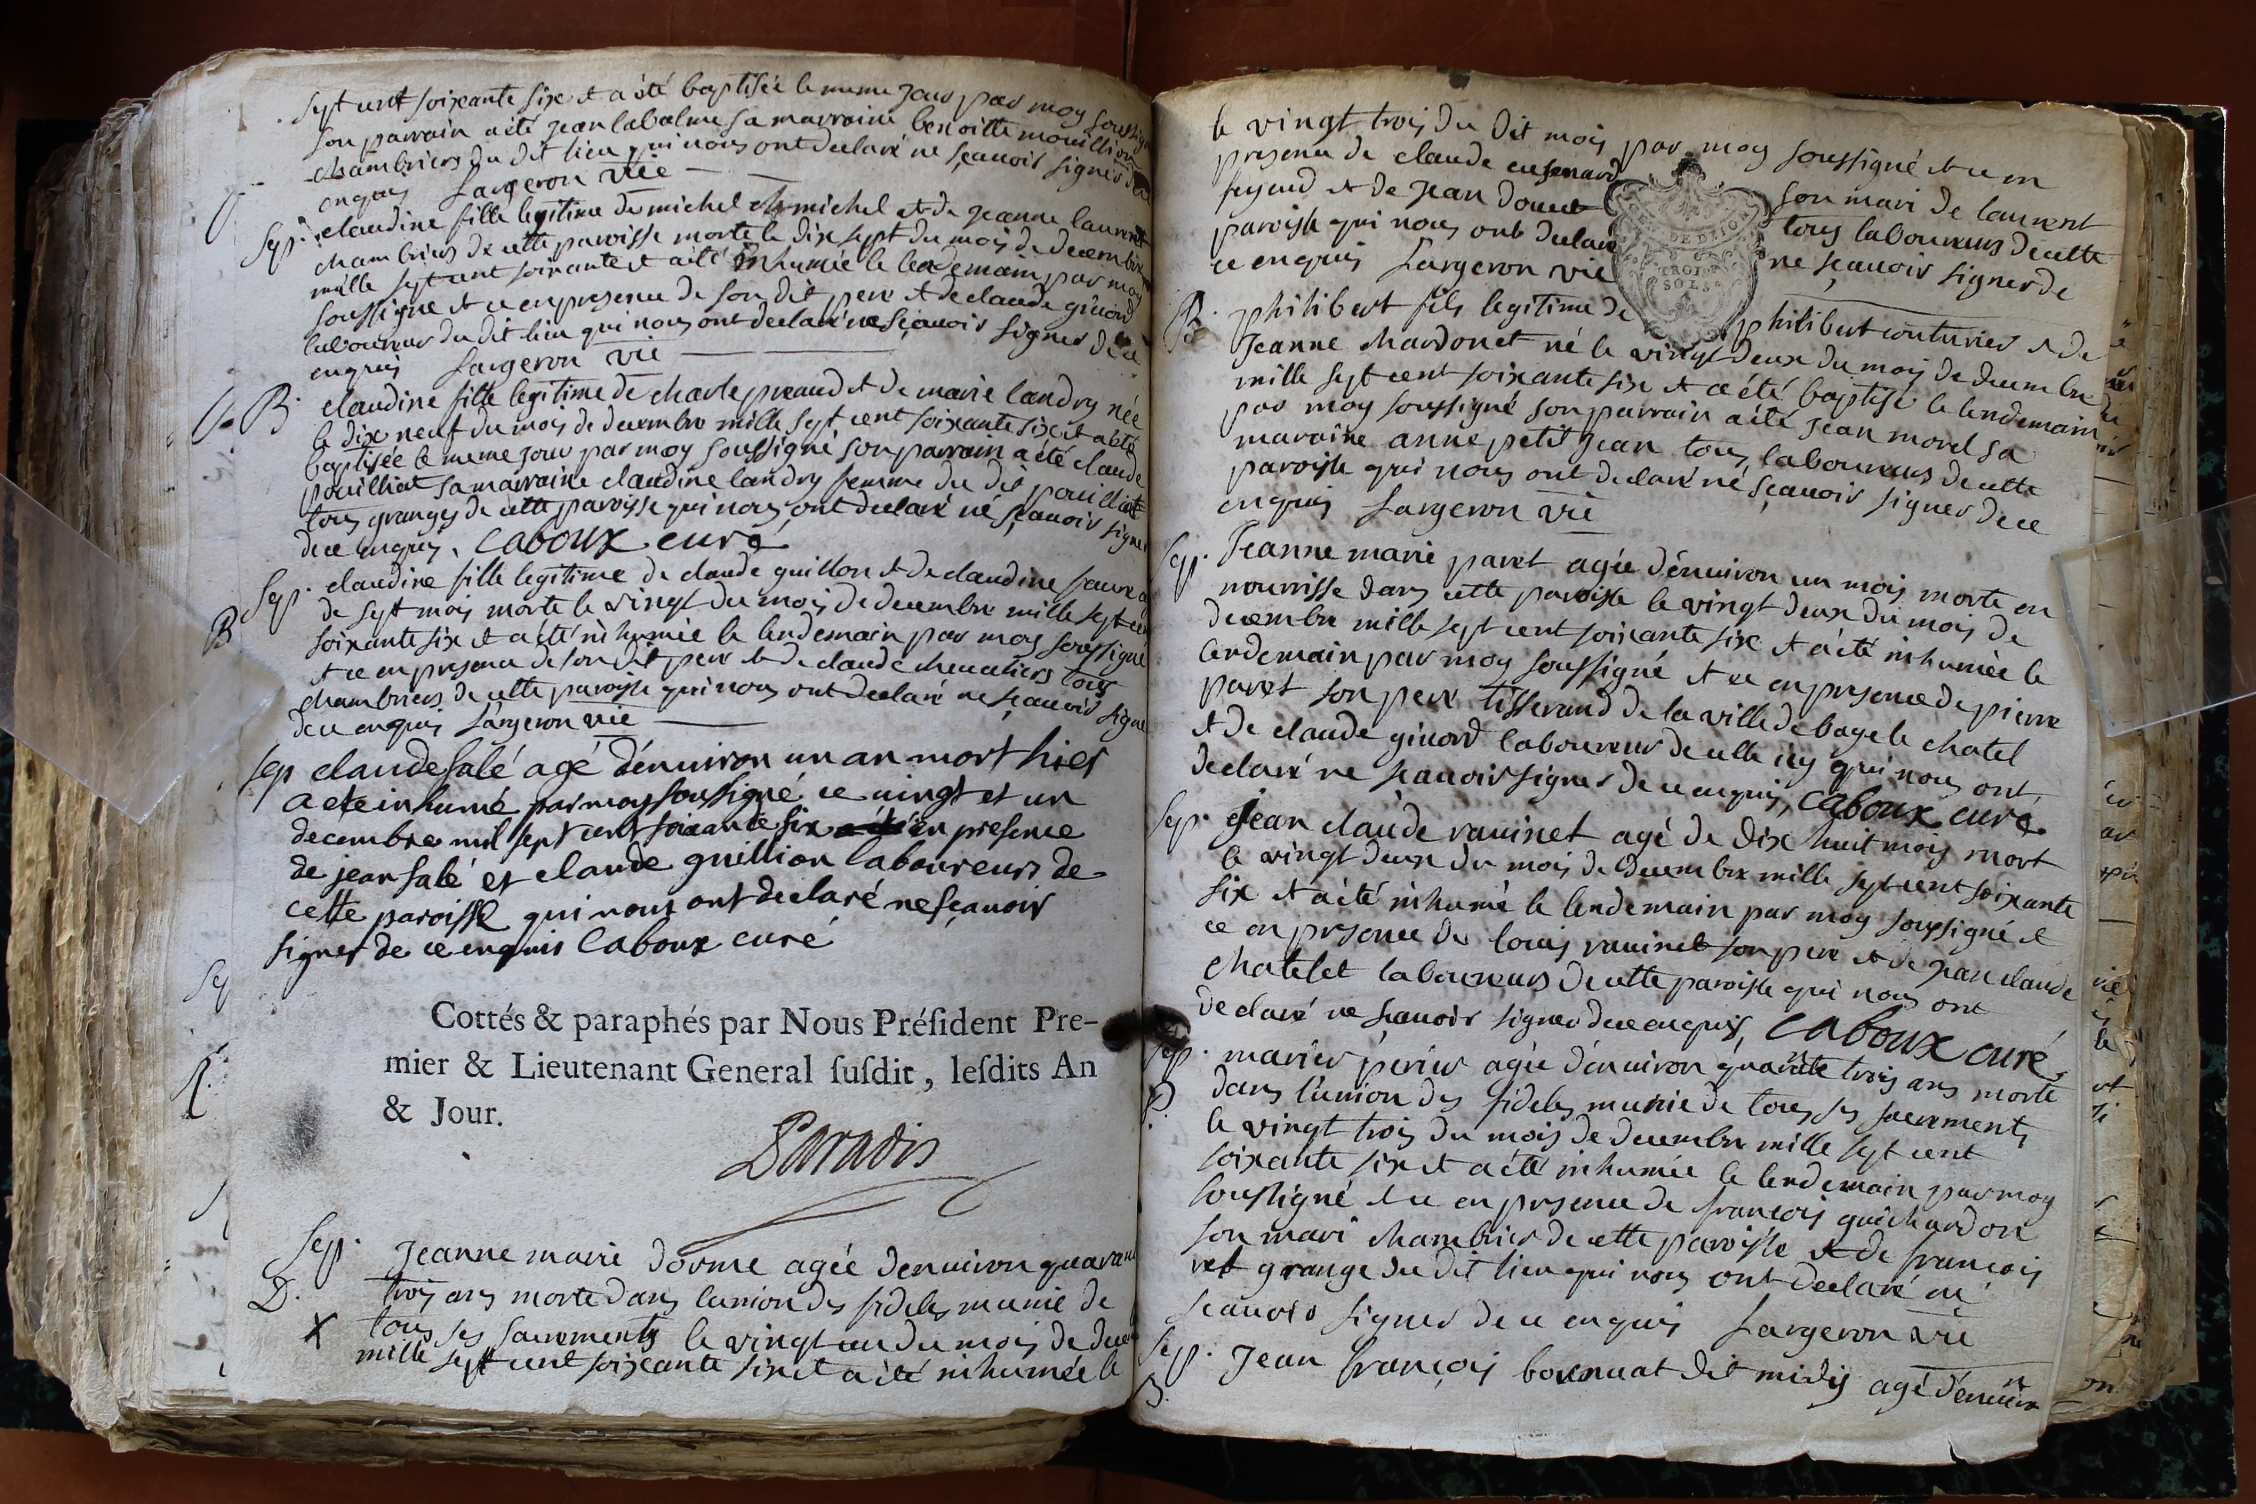 sept cent soixante six et a été baptisée le meme jour par moy soussigné
son parrain a été jean labalme sa marraine benoitte mouillion
chambriers du dit lieu qui nous ont declaré ne sçauoir signer de ce
enquis Largeron vic
Sep. claudine fille legitime de michel michel et de jeanne laurent
chambriers de cette paroisse morte le dix sept du mois de decembre
mille sept cent soixante et a été inhumée le lendemain par moy
soussigné et ce en presence de son dit pere et de claude giuord
laboureur du dit lieu qui nous ont declaré ne sçauoir signer de ce
enquis Largeron vic
B. claudine fille legitime de charle preaud et de marie landry née
le dix neuf du mois de decembre mille sept cent soixante six et a été
baptisée le meme jour par moy soussigné son parrain a été claude
pouilliat sa marraine claudine landry femme du dit pouilliat
tous grangers de cette paroisse qui nous ont declaré ne sçauoir signer
de ce enquis. caboux curé
Sep. claudine fille legitime de claude guillon et de claudine
de sept mois morte le vingt du mois de decembre mille sept cent
soixante six et a été inhumée le lendemain par moy soussigné
et ce en presence de son dit pere et de claude cheualiers tous
chambriers de cette paroisse qui nous ont declaré ne sçauoir signer
de ce enquis Largeron vic
sep claude salé agé d'enuiron un an mort hier
a eté inhumé par moy soussigné ce uingt et un
decembre mil sept cent soixante six en presence
de jean salé et claude guillion laboureurs de
cette paroisse qui nous ont declaré ne sçauoir
signer de ce enquis Caboux curé
Cottés & paraphés par Nous Préſident Pre-
mier & Lieutenant General ſuſdit, leſdits An
& Jour.
Paradis
Sep. Jeanne marie dorme agée denuiron quarante
D. trois ans morte dans lunion des fideles munie de
X tous ses sacrements le vingt un du mois de
mille sept cent soixante six et a été inhumée le
le vingt trois du dit mois par moy soussigné et ce en
presence de claude son mari de laurent
feyeud et de jean douet tous laboureurs de cette
paroisse qui nous ont declaré ne sçauoir signer de
ce enquis Largeron vic
B. philibert fils legitime de philibert couturier et de
Jeanne chardonet né le vingt deux du mois de decembre
mille sept cent soixante six et a été baptisé le lendemain
par moy soussigné son parrain a été jean morel sa
maraine anne petit jean tous laboureurs de cette
paroisse qui nous ont declaré ne sçauoir signer de ce
enquis Largeron vic
Sep. Jeanne marie paret agée d'enuiron un mois morte en
nourrisse dans cette paroisse le vingt deux du mois de
decembre mille sept cent soixante six et a été inhumée le
lendemain par moy soussigné et ce en presence de pierre
paret son pere tisserand de la ville de bage le chatel
et de claude giuord laboureur de cette icy qui nous ont
declaré ne sçauoir signer de ce enquis, caboux curé
Sep. jean claude rauinet agé de dix huit mois mort
le vingt deux du mois de decembre mille sept cent soixante
six et a été inhumé le lendemain par moy soussigné et
ce en presence de louis rauinet son pere et de jean claude
chatelet laboureurs de cette paroisse qui nous ont
declaré ne sçauoir signer de ce enquis, caboux curé
Sep. marie perier agée d'enuiron quarante trois ans morte
dans l'union des fideles munie de tous ses sacrements
le vingt trois du mois de decembre mille sept cent
soixante six et a été inhumée le lendemain par moy
soussigné et ce en presence de francois guichardon
son mari chambrier de cette paroisse et de francois
granger du dit lieu qui nous ont declaré ne
sçauoir signer de ce enquis Largeron vic
Sep. Jean françois agé d'enuiron